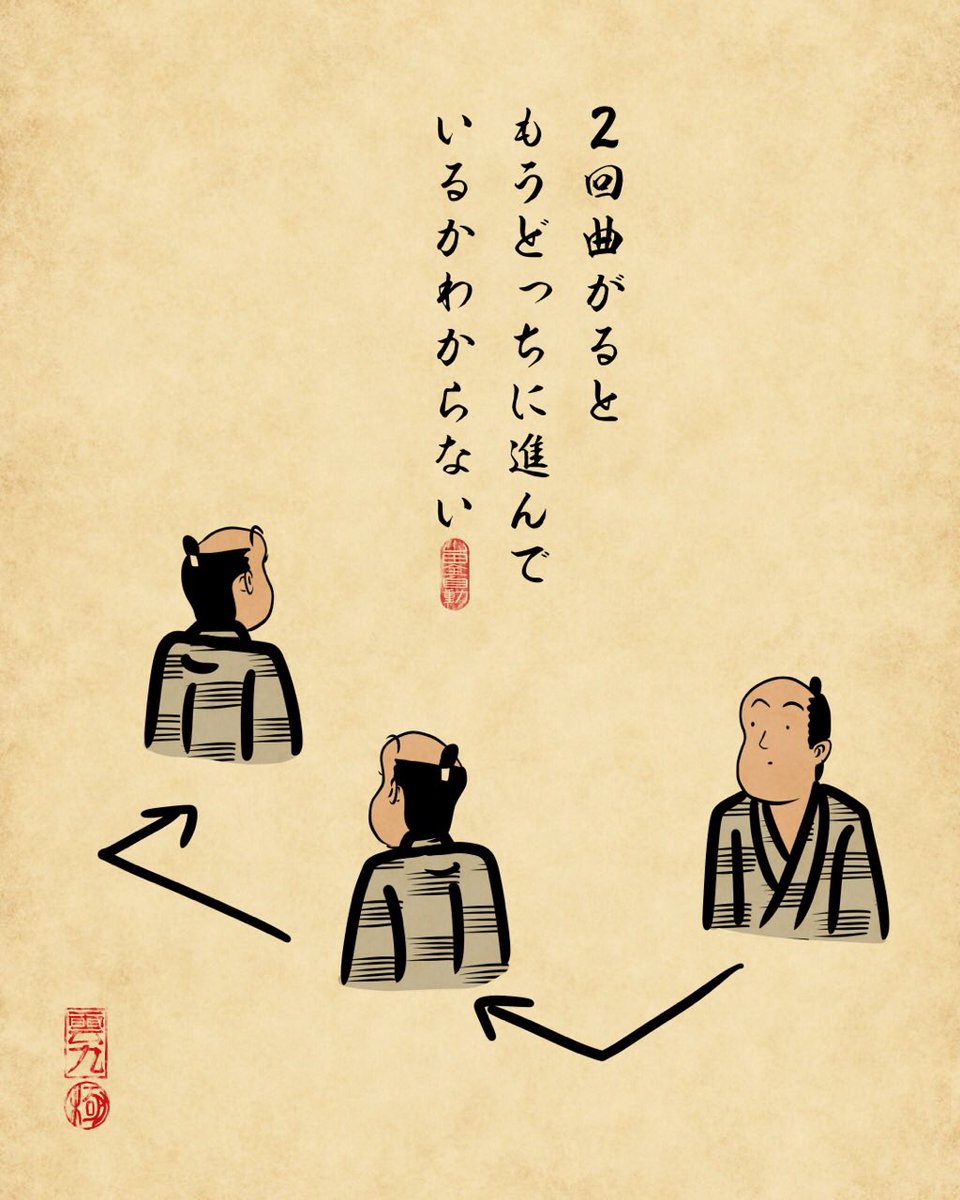 2回曲がると
もうどっちに進んで
いるかわからない